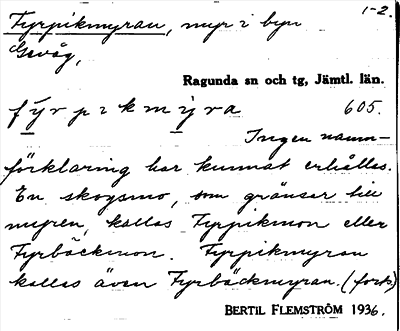 Fyrpikmyran, myr i byn 1-2.
Gevåg,
Ragunda sn och tg, Jämtl. län.
fyrpikmyra 605.
Ingen namn-
förklaring har kunnat erhållas.
En skogsmo, som gränsar till
myren, kallas Fyrpikmon eller
Fyrbäckmon. Fyrpikmyran
kallas även Fyrbäckmyran. (forts)
BERTIL FLEMSTRÖM 1936.